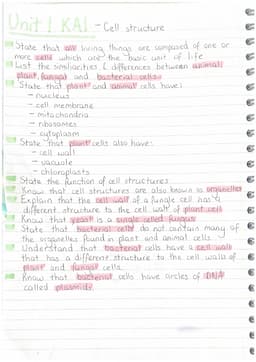 Unit 1 KA1 - Cell structure
State that all living things are composed of one or
more cells which are the basic unit of life
List the similarities & differences between animal,
plant, fungal and bacterial cells
State that plant and animal cells have:
- nucleus
- cell membrane
- mitochondria
- ribosomes
- cytoplasm
State that plant cells also have:
- cell wall
- vacuole
- chloroplasts
State the function of cell structures
Know that cell structures are also known as organelles
Explain that the cell wall of a fungle cell has a
different structure to the cell wall of plant cell
Know that yeast is a single celled fungus
State that bacterial cells do not contain many of
the organelles found in plant and animal cells
Understand that bacterial cells have a cell wall
that has a different structure to the cell walls of
plant and fungal cells.
Know that bacterial cells have circles of DNA
called plasmids